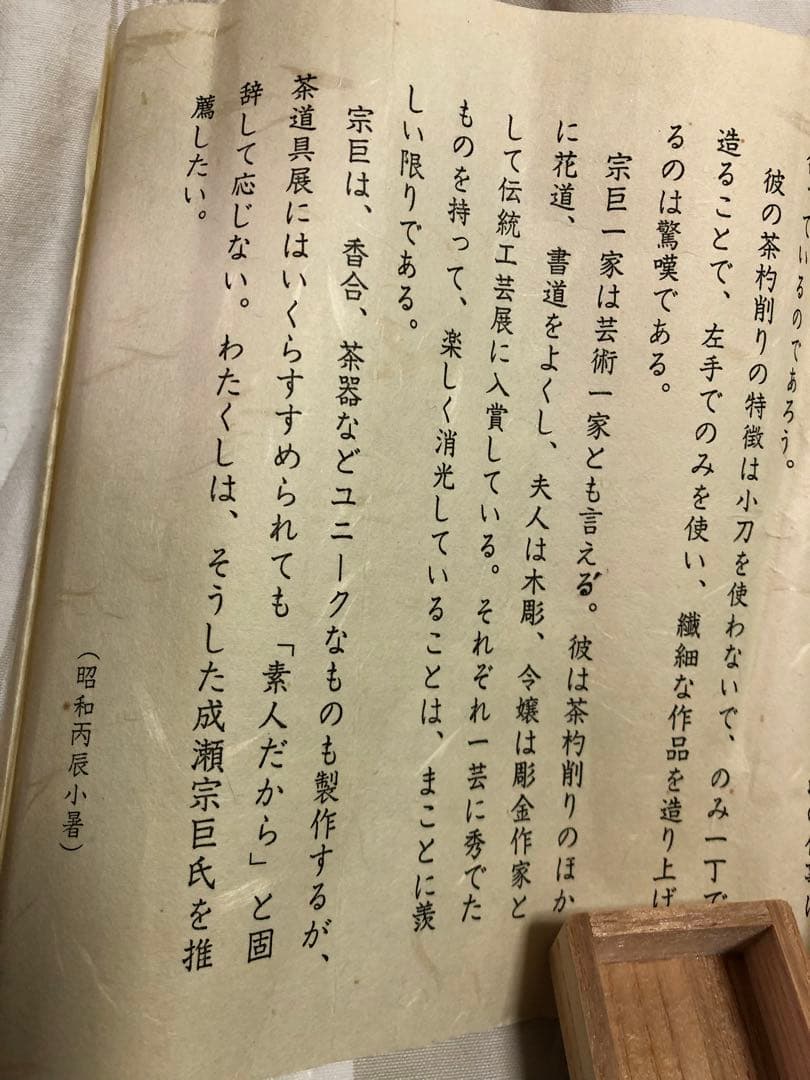 ているのであろう。
彼の茶杓削りの特徴は小刀を使わないで、のみ一丁で
造ることで、左手でのみを使い、繊細な作品を造り上げ
るのは驚嘆である。
宗巨一家は芸術一家とも言える。彼は茶杓削りのほか
に花道、書道をよくし、夫人は木彫、令嬢は彫金作家と
して伝統工芸展に入賞している。それぞれ一芸に秀でた
ものを持って、楽しく消光していることは、まことに羨
しい限りである。
宗巨は、香合、茶器などユニークなものも製作するが、
茶道具展にはいくらすすめられても「素人だから」と固
辞して応じない。わたくしは、そうした成瀬宗巨氏を推
薦したい。
(昭和丙辰小暑)